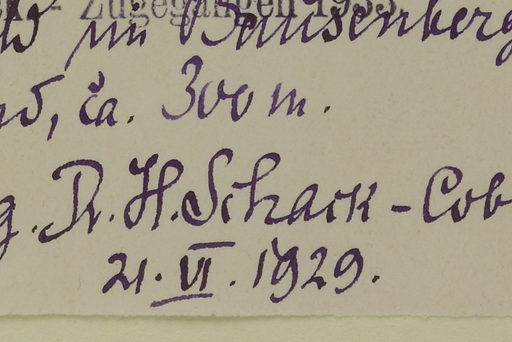 - Zugegangen 1933.
im Bausenberg
ca. 300 m.
g. Dr. H. Schack - Cob
21. VI. 1929.